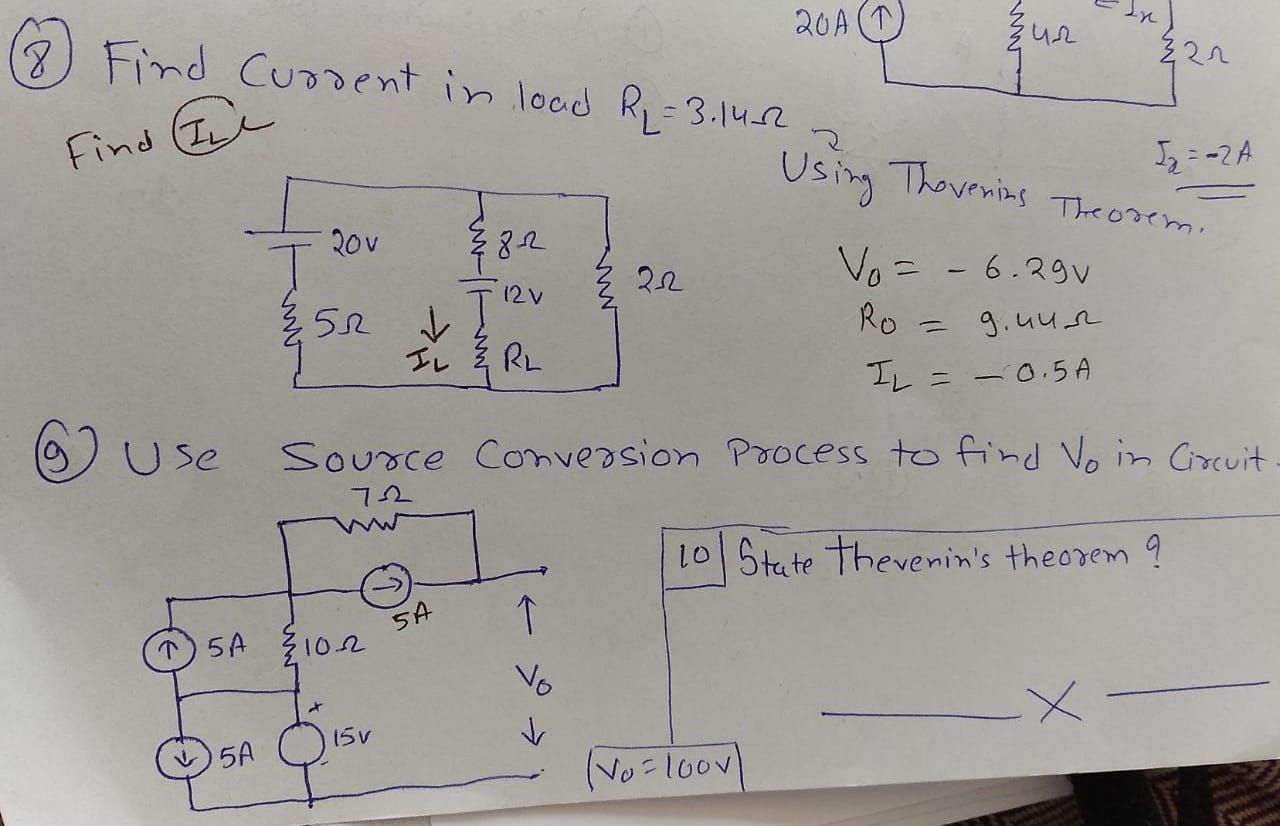 20A
4Ω
= Ix
2Ω
Ix = -2A
⑧ Find Current in load RL = 3.14Ω
Find IL
Using Thovenins Theorem.
20V
8Ω
12V
2Ω
5Ω
IL
RL
Vo = - 6.29v
Ro = 9.44Ω
IL = - 0.5A
⑨ Use Source Conversion Process to find Vo in Circuit.
7Ω
5A
5A
10Ω
Vo
+
15v
-
5A
Vo = 100V
10 State Thevenin's theorem ?
X